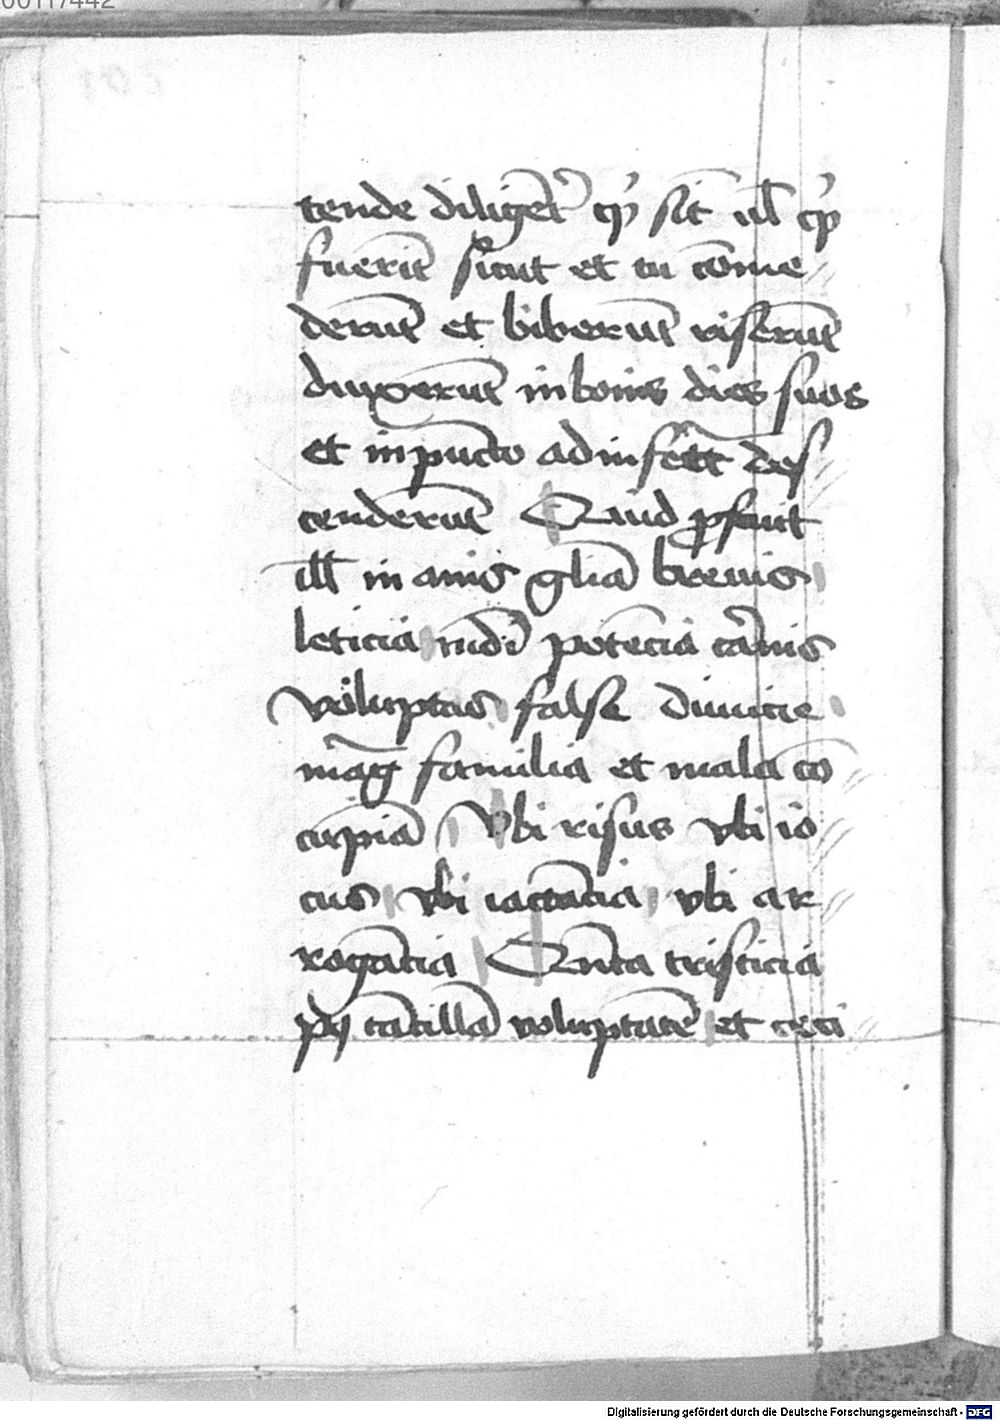 00117442
tende diligēt᷑ qͥ sīt ul̄ qͥ
fuerūt sicut et tu come
derūt et biberūt riserūt
duxerūt in bonis dies suos
et in pūcto ad infer̄ des
cenderūt Quid ꝓfuit
ill̄ inanis gl̄ia breuis
leticia mūdi potēcia carnis
voluptas false diuicie
mag̅ familia et mala cō
cupīa Vbi risus vbi io
cus vbi iactācia vbi ar
rogācia Qn̄ta tristicia
pꝰ tātillā voluptatē et ceci
Digitalisierung gefördert durch die Deutsche Forschungsgemeinschaft - DFG